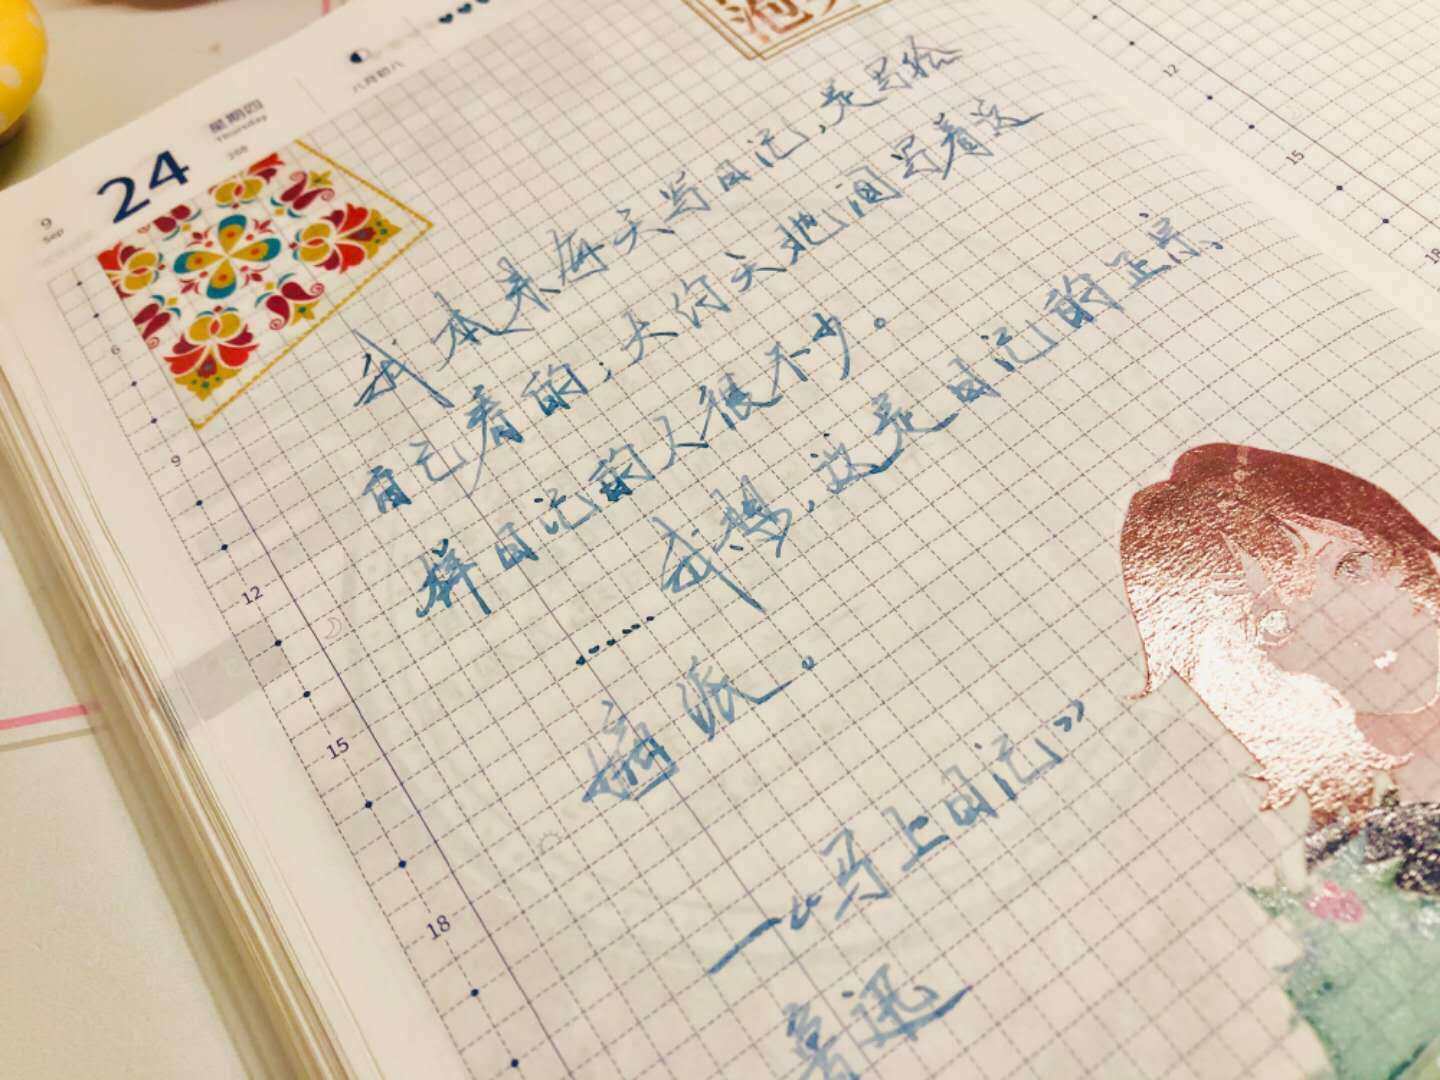 9
Sep
24
星期四
Thursday
八月初八
我本来每天写日记,是写给
自己看的;大约天地间写着这
样日记的人很不少。
……我想,这是日记的正宗
嫡派。
—“马上日记”
鲁迅
6
9
12
15
18
12
15
18